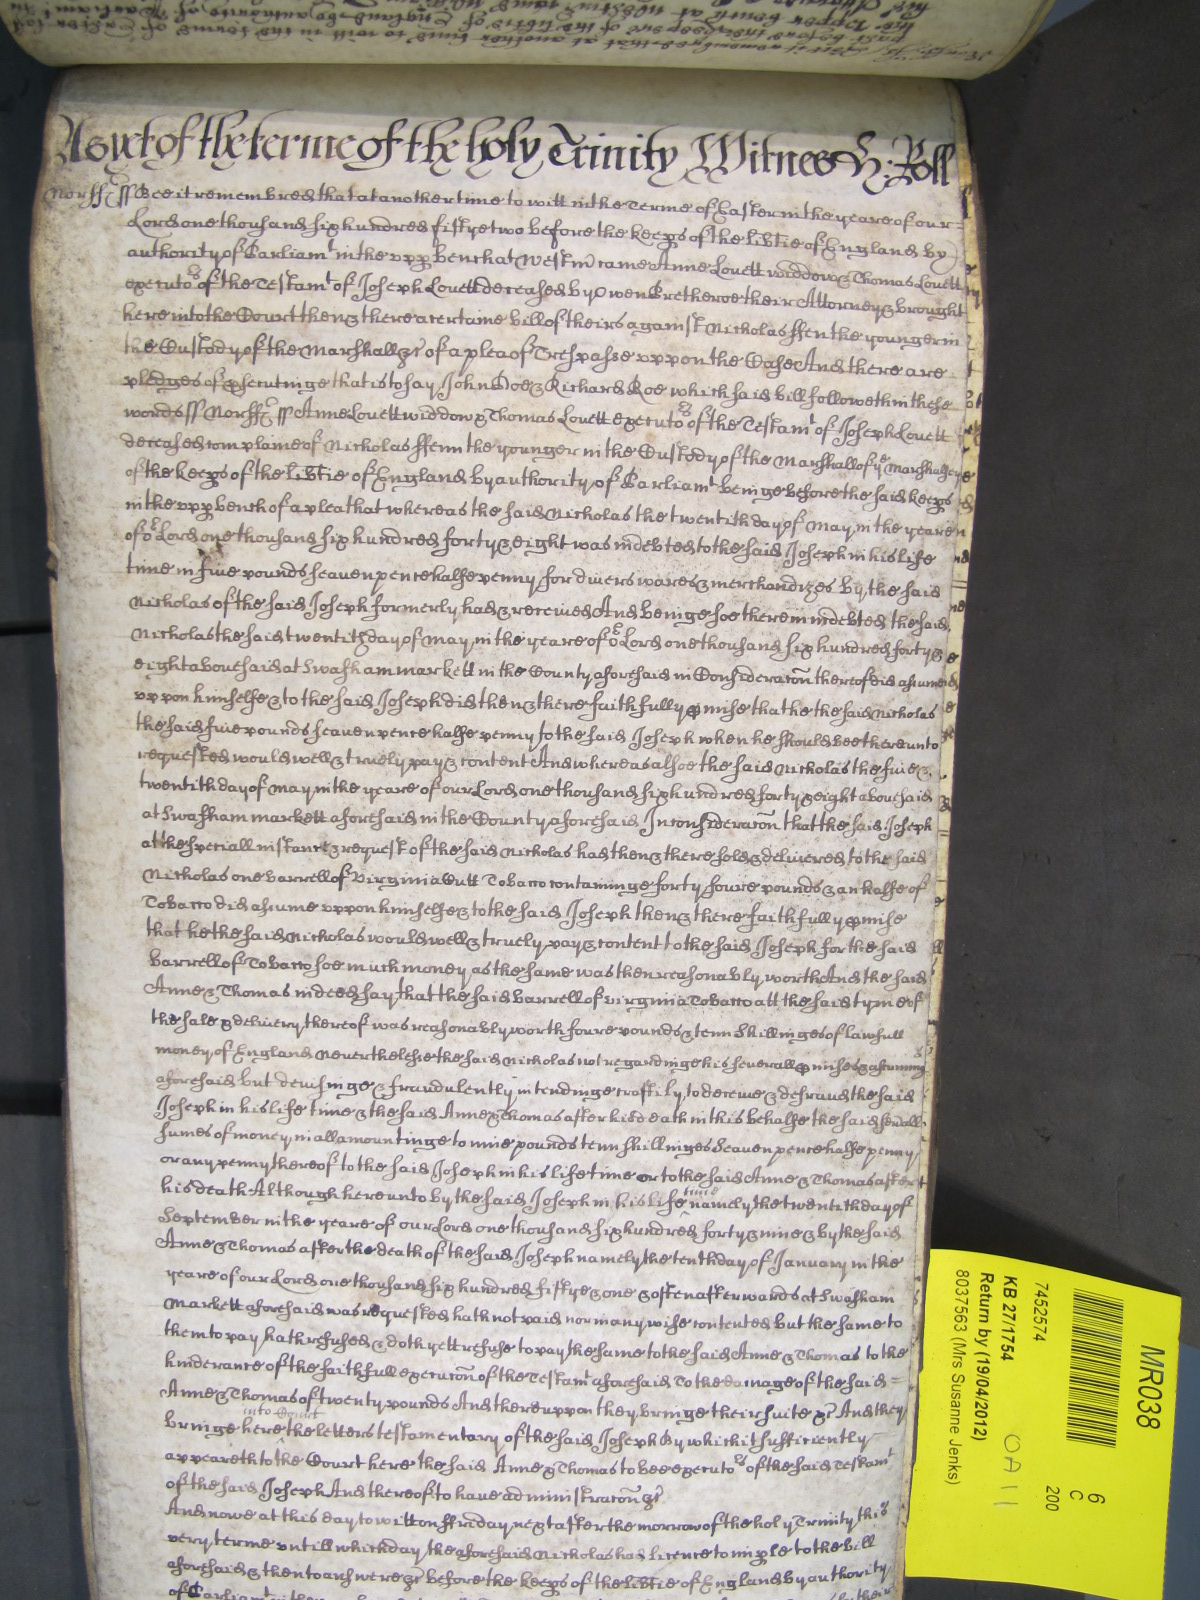 As yet of the terme of the holy Trinity Witnes H: Roll
Norff ss Bee it remembred that at another time to witt in the Terme of Easter in the yeare of our
Lord one thousand six hundred fiftye two before the keeps of the libtie of England by
authority of Parliamt in the upp bench at Westm came Anne Lovett widdow & Thomas Lovett
executors of the Testamt of Joseph Lovett deceased by Owen Bretheroe their Attorney & brought
here into the Court then & there a certaine bill of theirs against Nicholas ffen the younger in
the Custody of the Marshall &c of a plea of Trespasse uppon the Case And there are
pledges of psecutinge that is to say John Doe & Richard Roe which said bill followeth in these
words ss Norff ss Anne Lovett widdow & Thomas Lovett executors of the Testamt of Joseph Lovett
deceased complaine of Nicholas ffenn the younger in the Custody of the Marshall of ye Marshalsey
of the keeps of the libtie of England by authority of Parliamt beinge before the said keeps
in the upp bench of a plea that whereas the said Nicholas the twentith day of May in the yeare
of or Lord one thousand six hundred forty & eight was indebted to the said Joseph in his life
time in five pounds seaven pence halfe penny for divers wares & merchandizes by the said
Nicholas of the said Joseph formerly had & received And beinge soe therein indebted the said
Nicholas the said twentith day of May in the yeare of or Lord one thousand six hundred forty &
eight abovesaid at Swafham markett in the County aforesaid in Consideracon thereof did assume
uppon himselfe & to the said Joseph did then & there faithfully pmise that he the said Nicholas
the said five pounds seaven pence halfe penny to the said Joseph when he should bee thereunto
requested would well & truely pay & content And whereas alsoe the said Nicholas the five &
twentith day of May in the yeare of our Lord one thousand six hundred forty & eight abovesaid
at Swafham markett aforesaid in the County aforesaid In consideracon that the said Joseph
at the speciall instance & request of the said Nicholas had then & there sold & delivered to the said
Nicholas one barrell of Virginia Cutt Tobacco containinge forty foure pounds & an halfe of
Tobacco did assume uppon himselfe & to the said Joseph then & there faithfully pmise
that he the said Nicholas would well & truely pay & content to the said Joseph for the said
barrell of Tobacco soe much money as the same was then reasonably worth And the said
Anne & Thomas indeed say that the said barrell of virginia Tobacco att the said tyme of
the sale & delivery thereof was reasonably worth foure pounds & tenn Shillinges of lawfull
money of England Neverthelesse the said Nicholas not regardinge his severall pmises & assumpcons
aforesaid but devisinge & fraudulently intendinge craftily to deceive & defraud the said
Joseph in his life time & the said Anne & Thomas after his death in this behalfe the said sevall
sumes of money in all amountinge to nine pounds tenn shillinges Seaven pence halfe penny
or any penny thereof to the said Joseph in his life time or to the said Anne & Thomas after
his death Although hereunto by the said Joseph in his life time namely the twentith day of
September in the yeare of our Lord one thousand six hundred forty & nine & by the said
Anne & Thomas after the death of the said Joseph namely the tenth day of January in the
yeare of our Lord one thousand six hundred fiftye & one & often afterwards at Swafham
Markett aforesaid was requested hath not paid nor in any wise contented but the same to
them to pay hath refused & doth yett refuse to pay the same to the said Anne & Thomas to the
hinderance of the faithfull execucon of the Testamt aforesaid To the damage of the said
Anne & Thomas of twenty pounds And thereuppon they bringe their suite &c And they
bringe here into Court the letters testamentary of the said Joseph By which it sufficiently
appeareth to the Court here the said Anne & Thomas to bee executors of the said Testamt
of the said Joseph And thereof to have administracon &c
And nowe at this day to witt on ffriday next after the morrow of the holy Trinity this
very terme untill which day the aforesaid Nicholas had licence to imple to the bill
aforesaid & then to answere &c before the keeps of the libtie of England by authority
of Parliamt in the
MR038
7452574
KB 27/1754
Return by (19/04/2012)
8037563 (Mrs Susanne Jenks)
6
C
200
OA 11